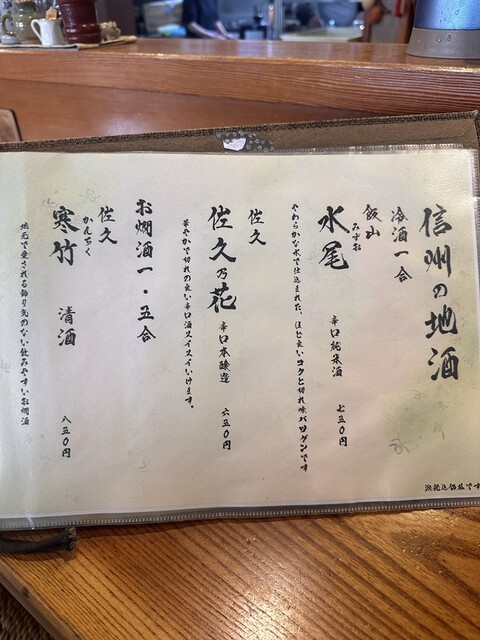 信州の地酒
冷酒一合
飯山
みずお
水尾 辛口純米酒 七五0円
やわらかな水で仕込まれた、ほど良いコクと切れ味バツグンです
佐久
佐久乃花 辛口本醸造 六五0円
華やかで切れの良い辛口酒スイスイいけます。
お燗酒一・五合
佐久
かんちく
寒竹 清酒 八五0円
地元で愛される飾り気のない飲みやすいお燗酒
消税込価格です